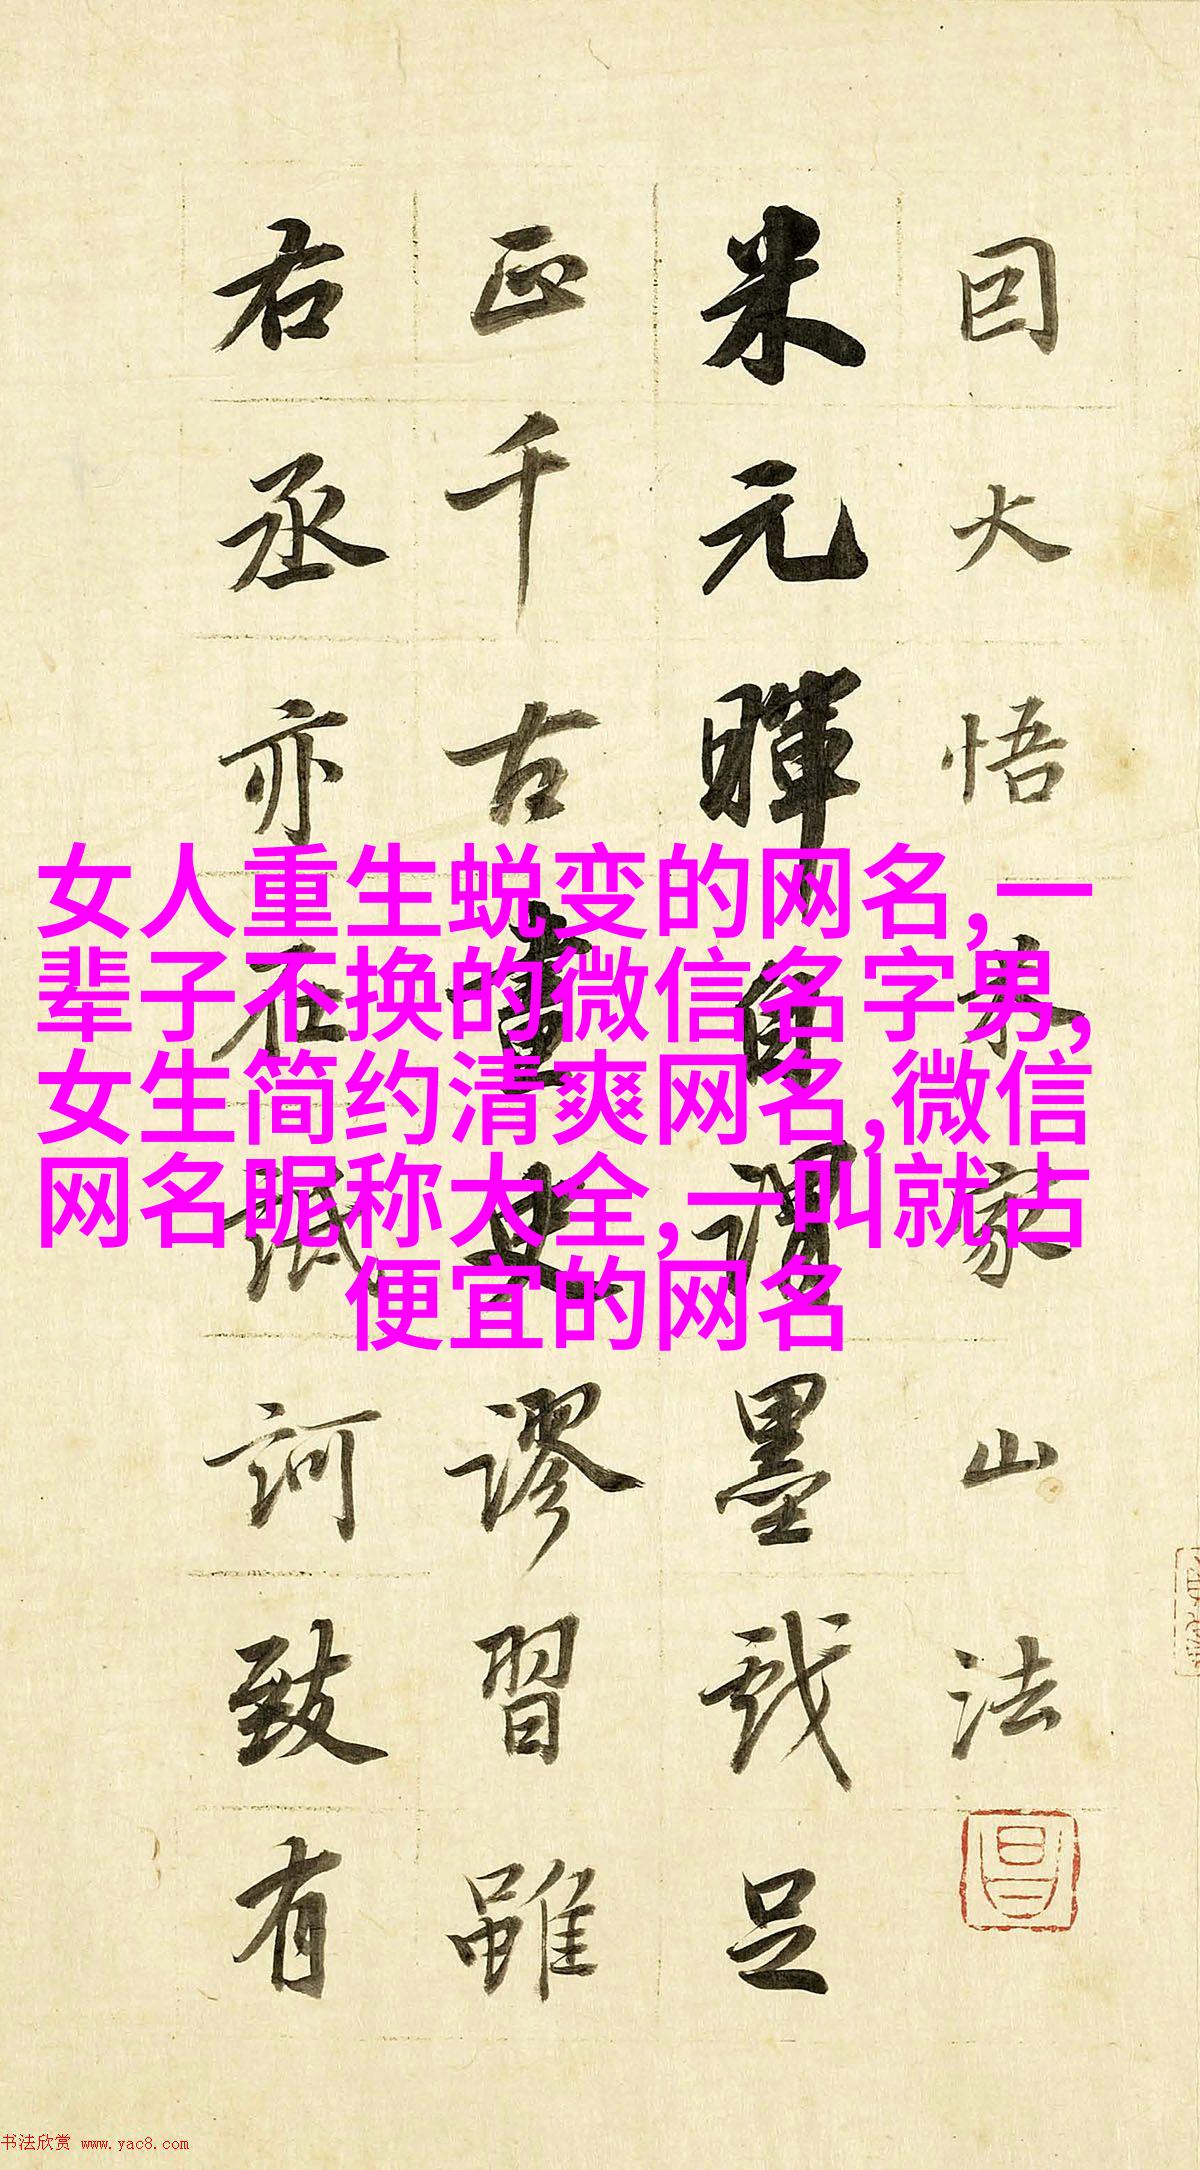 囙大悟米家山法
米元暉自謂墨戲足
正千古畫史謬習雖
右丞亦在詆訶致有
女人重生蜕变的网名,一
辈子不换的微信名字男,
女生简约清爽网名,微信
网名昵称大全,一叫就占
便宜的网名
书法欣赏 www.yac8.com